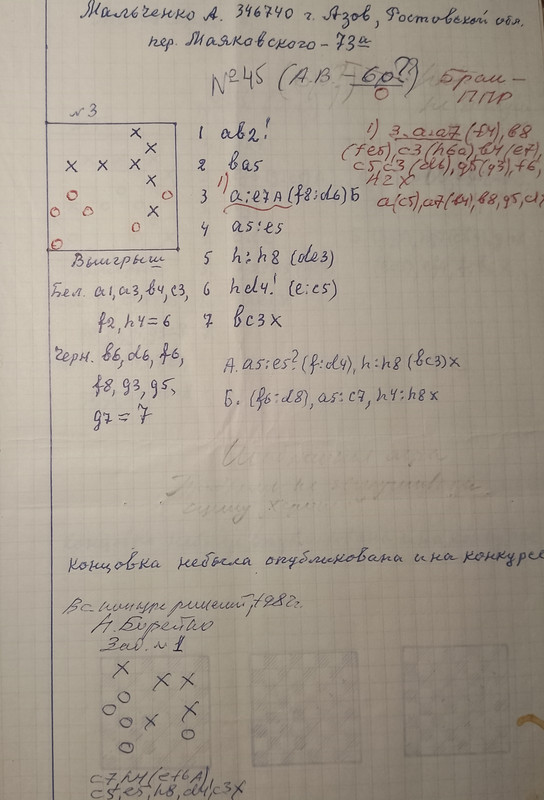 Мальченко А. 346740 г. Азов, Ростовской обл.
пер. Маяковского - 73а
№45 (А.В. - 60?) Брак -
0 ППР
№3
1 ab2!
2 ba5
3 1) a:e7 А (f8:d6) Б
4 a5:e5
5 h:h8 (de3)
6 hd4! (e:c5)
7 bc3x
1) 3. a:a7 (f4), b8
(fe5), c3 (h6a) b4 (e7),
c5, c3 (d6), g5 (g3), f6,
h2 x
a(c5), a7(f4), b8, g5, d7
Выигрыш
Бел. a1, a3, b4, c3,
f2, h4 = 6
Черн. b6, d6, f6,
f8, g3, g5,
g7 = 7
А. a5:e5? (f:d4), h:h8 (bc3) x
Б. (f6:d8), a5:c7, h4:h8x
Концовка небыла опубликована и на конкурсе
решений, 1982г.
Н. Борейко
Зад. №1
c7, h4 (ef6А)
c5, e5, h8, d4, c3x